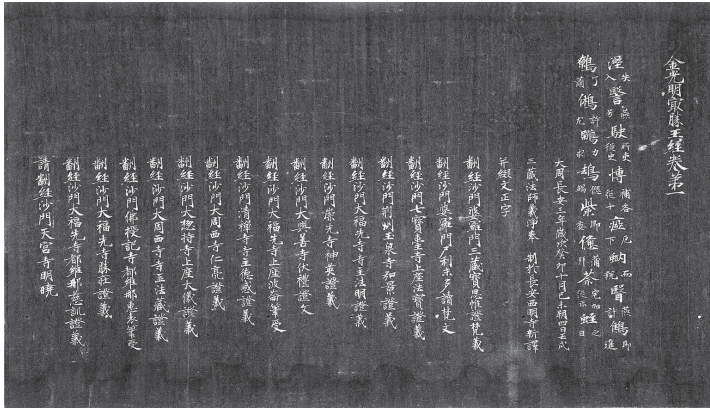 金光明最勝王經卷第一
駛 所吏 從史 博 補各 從十 枘 而稅 瞖 燕計
鵂 許尤 鴟 蛭 之日
大周長安三年歲次癸卯十月己未朔四日壬戌
三藏法師義淨奉 制於長安西明寺新譯
并綴文正字
翻經沙門婆羅門三藏寶思惟證梵義
翻經沙門婆羅門尸利末多讀梵文
翻經沙門七寶臺上座法寶證義
翻經沙門荊州玉泉寺弘景證義
翻經沙門大福先寺寺主法明證義
翻經沙門崇光寺神英證義
翻經沙門大興善寺伏禮證文
翻經沙門大福先寺上座波崙筆受
翻經沙門清禪寺寺主德感證義
翻經沙門大周西寺仁亮證義
翻經沙門大惣持寺上座大儀證義
翻經沙門大周西寺寺主法藏證義
翻經沙門佛授記寺都維那惠表筆受
翻經沙門大福先寺勝莊證義
翻經沙門大福先寺都維那慈訓證義
請翻經沙門天宮寺明曉